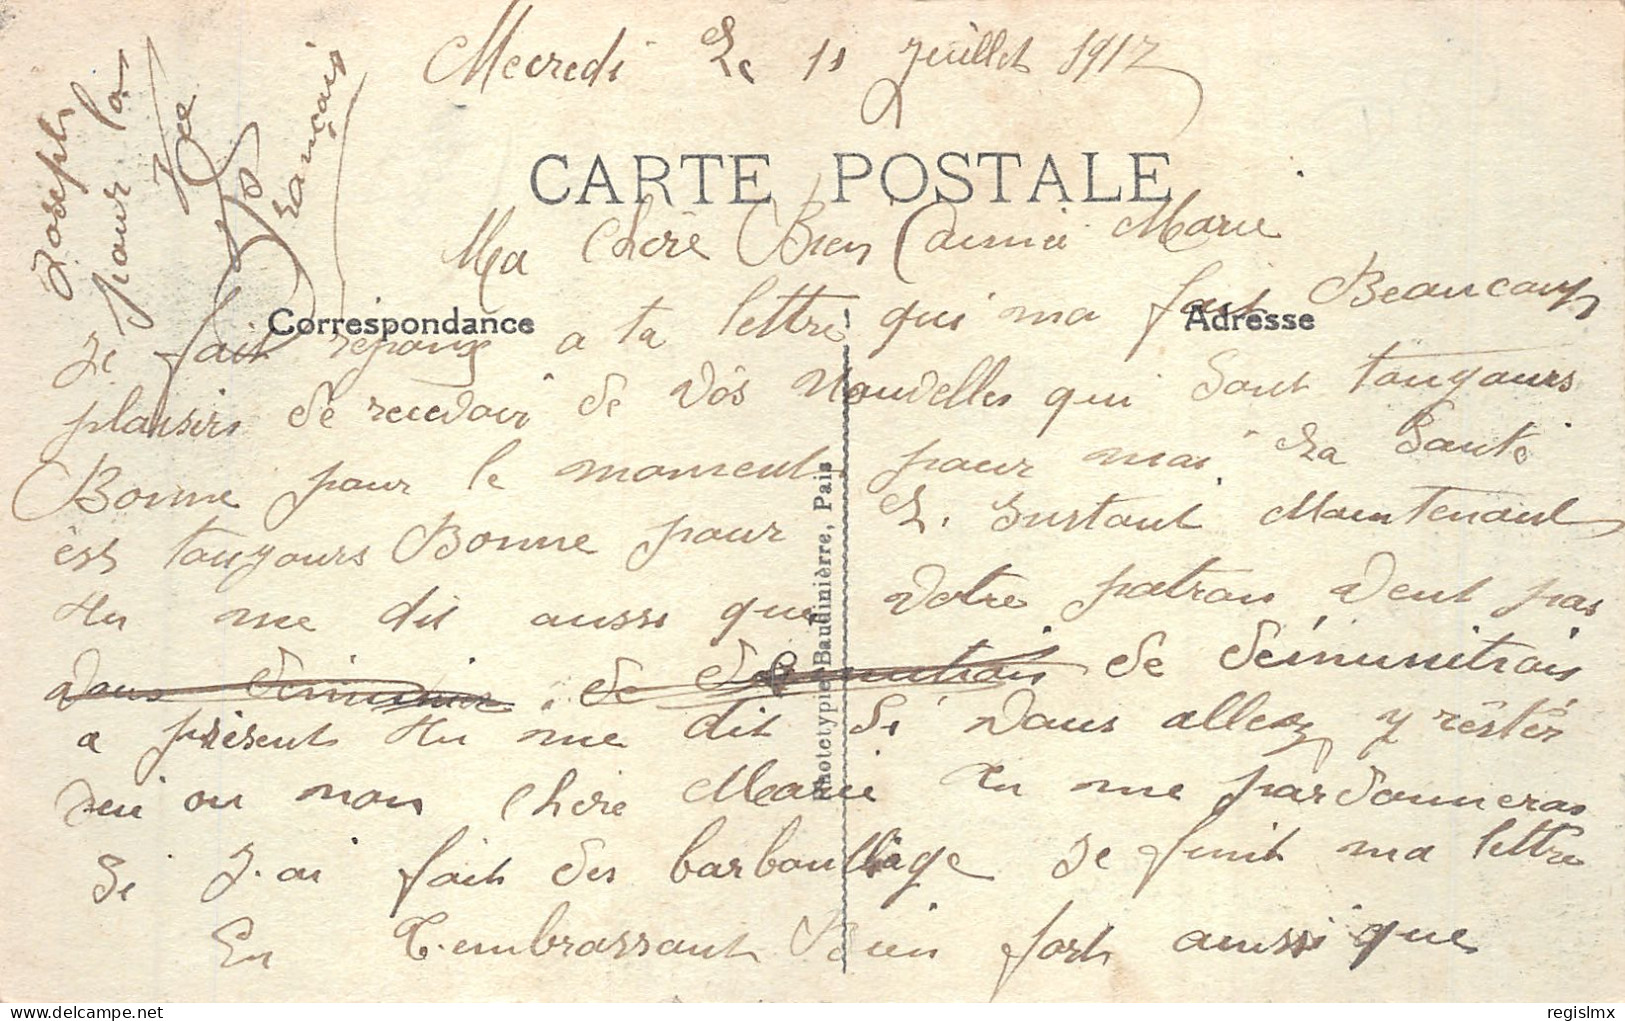 Mecredi Le 11 Juillet 1917
CARTE POSTALE
Ma Chère Bien aimée Marie
Correspondance
Adresse
Je fait réponse a ta lettre qui ma fait Beaucoup
plaisirs de recevoir de Vos Nouvelles qui sont toujours
Bonne pour le moment pour moi La Santé
est toujours Bonne pour L'instant Maintenant
tu me dit aussi que Votre patron Veut pas
Vous diminuer de de déminitrais
a présent tu me dit si Vous allez y rester
oui ou non Chère Marie tu me pardonneras
Si J.ai fait des barbouillage Je finit ma lettre
En T.embrassant Bien fort aussi que
Joseph
pour la
Vie
François
Phototypie Baudinière, Pais
regislmx